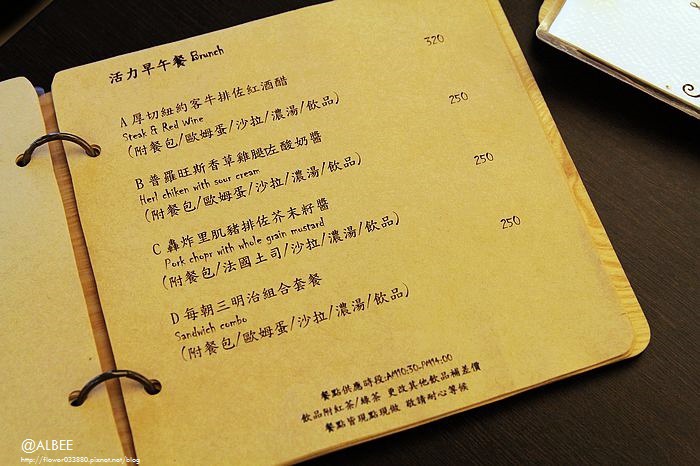 活力早午餐 Brunch
A 厚切紐約客牛排佐紅酒醋 320
Steak & Red Wine
(附餐包/歐姆蛋/沙拉/濃湯/飲品)
B 普羅旺斯香草雞腿佐酸奶醬 250
Herl chiken with sour cream
(附餐包/歐姆蛋/沙拉/濃湯/飲品)
C 轟炸里肌豬排佐芥末籽醬 250
Pork chopr with whole grain mustard
(附餐包/法國土司/沙拉/濃湯/飲品)
D 每朝三明治組合套餐 250
Sandwich combo
(附餐包/歐姆蛋/沙拉/濃湯/飲品)
餐點供應時段:AM10:30-PM14:00
飲品附紅茶/綠茶 更改其他飲品補差價
餐點皆現點現做 敬請耐心等候
@ALBEE
http://flower033880.pixnet.net/blog